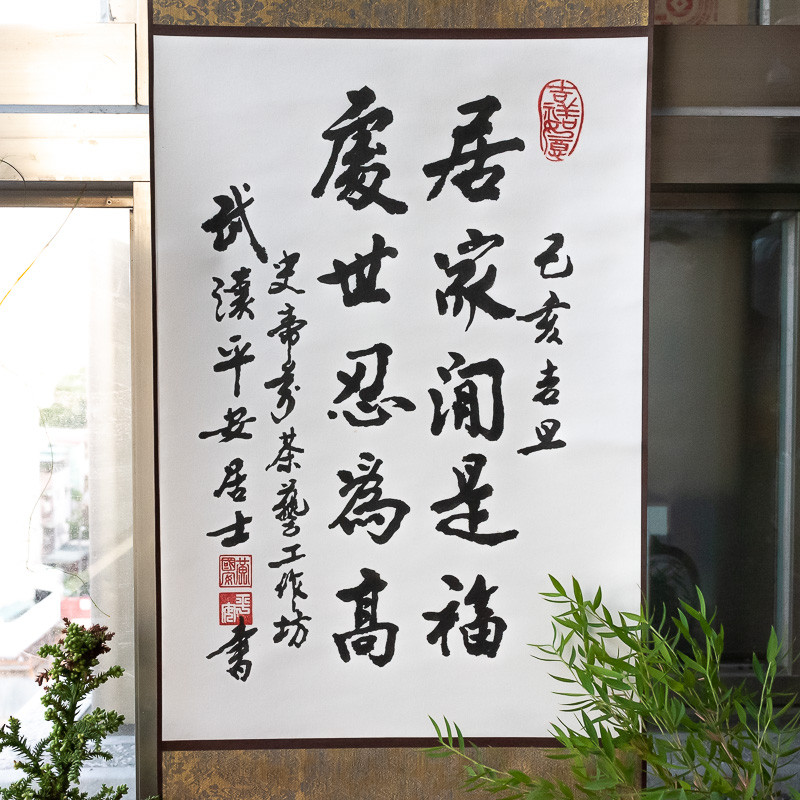 吉祥如意
己亥吉旦
居家閒是福
處世忍為高
史帝芬茶藝工作坊
武漢平安居士
書